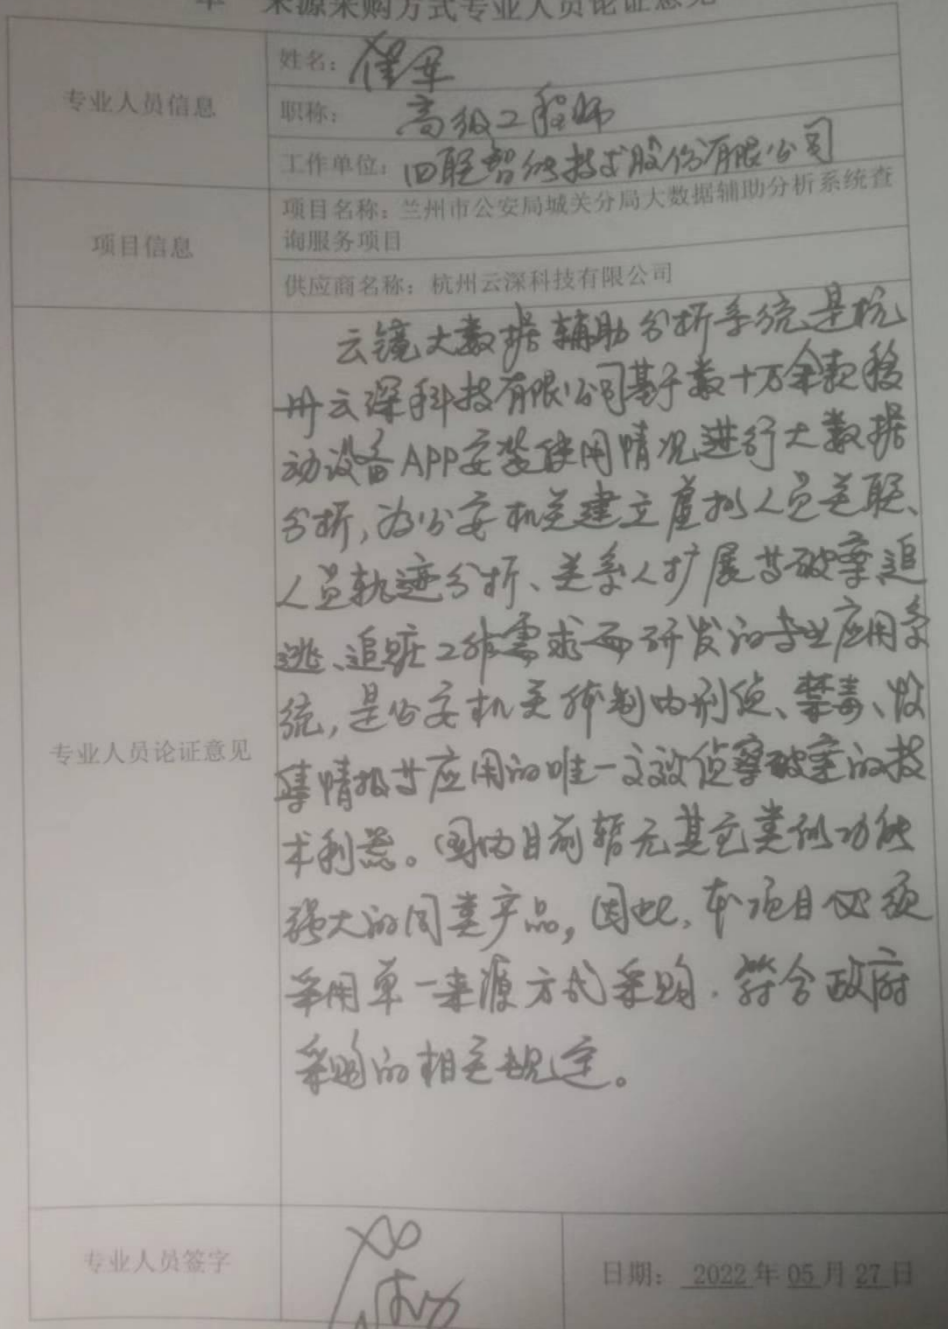 单一来源采购方式专业人员论证意见
专业人员信息
姓名：
职称： 高级工程师
工作单位：四联智能技术股份有限公司
项目信息
项目名称：兰州市公安局城关分局大数据辅助分析系统查
询服务项目
供应商名称：杭州云深科技有限公司
专业人员论证意见
云镜大数据辅助分析系统是杭
州云深科技有限公司基于数十万余款移
动设备APP安装使用情况进行大数据
分析，为公安机关建立虚拟人员关联、
人员轨迹分析、关系人扩展等破案追
逃、追赃工作需求而研发的专业应用系
统，是公安机关体制内刑侦、禁毒、收
集情报等应用的唯一有效侦察破案的技
术利器。国内目前暂无其它类似功能
强大的同类产品，因此，本项目必须
采用单一来源方式采购．符合政府
采购的相关规定。
专业人员签字
日期： 2022 年 05 月 27 日